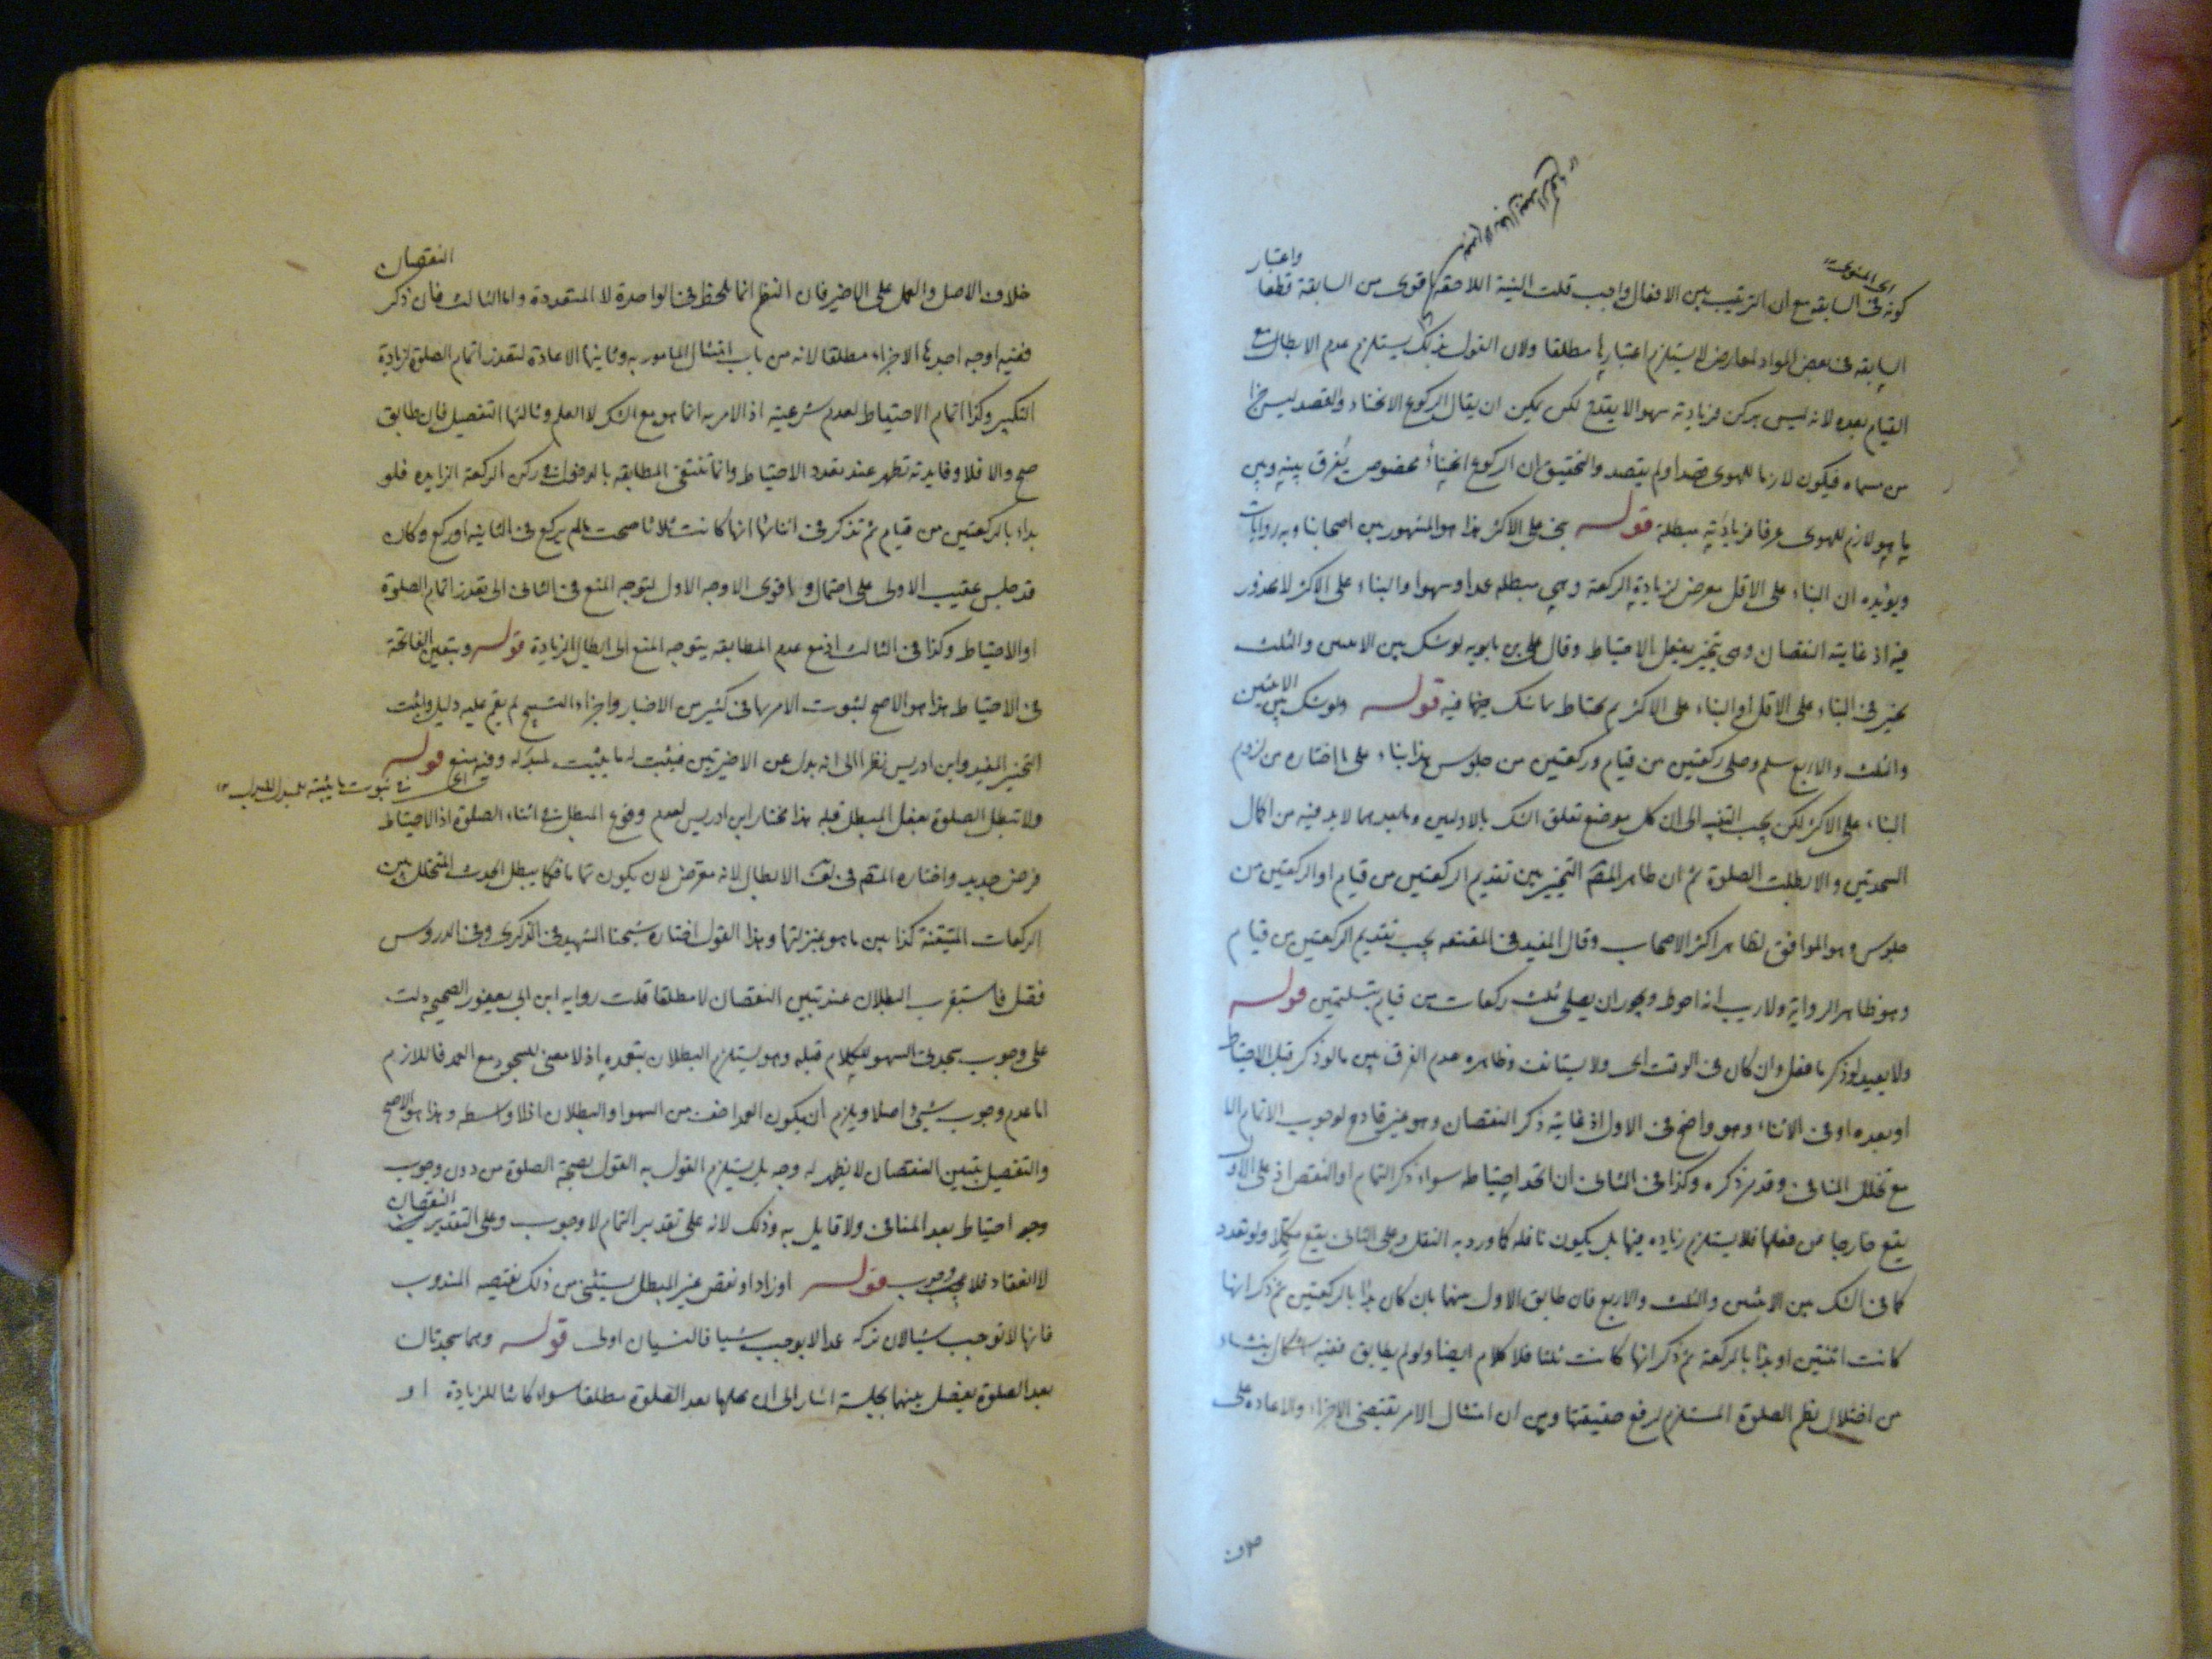 واعتبار
كونه فى السابقه مع ان الترتيب بين الافعال واجب قلت النية اللاحقه اقوى من السابقة قطعا
السابقه فى بعض المواد لمعارض لا يستلزم اعتبارها مطلقا ولان القول بذلك يستلزم عدم الابطال مع
القيام بعده لانه ليس بركن فزيادته سهوا لا يقدح لكن يمكن ان يقال الركوع الانحناء والقصد ليس جزا
من مسماه فيكون لازما للهوى قصد او لم يقصد والتحقيق ان الركوع انحناء مخصوص يفرق بينه وبين
ما هو لازم للهوى عرفا فزيادته مبطلة قوله بنى على الاكثر هذا هو المشهور بين اصحابنا وبه روايات
ويؤيده ان البناء على الاقل معرض لزيادة الركعة وهى مبطله عمدا وسهوا والبناء على الاكثر لا محذور
فيه اذ غايته النقصان وهى تنجبر بفعل الاحتياط وقال على بن بابويه لو شك بين الاثنين والثلث
تخير فى البناء على الاقل او البناء على الاكثر ثم يحتاط ما شك فيه قوله ولو شك بين الاثنين
والثلث والاربع سلم وصلى ركعتين من قيام وركعتين من جلوس هذا بناء على ما اختاره من لزوم
البناء على الاكثر لكن يجب التنبيه الى ان كل موضع تعلق الشك بالاوليين وما بعدهما لا بد فيه من اكمال
السجدتين والا بطلت الصلوة ثم ان ظاهر المصّ التخيير بين تقديم الركعتين من قيام او الركعتين من
جلوس وهو الموافق لظاهر اكثر الاصحاب وقال المفيد فى المقنعه يجب تقديم الركعتين من قيام
وهو ظاهر الرواية ولا ريب انه احوط ويجوز ان يصلى ثلث ركعات من قيام بتسليمتين قوله
ولا يعيد لو ذكر ما فعل وان كان فى الوقت اى ولا يستانف وظاهره عدم الفرق بين ما لو ذكر قبل الاحتياط
او بعده او فى الاثناء وهو واضح فى الاول اذ غايته ذكر النقصان وهو غير قادح لوجوب الاتمام الا
مع تخلل المنافى وقد مر ذكره وكذا فى الثانى ان اتحد احتياطه سواء ذكر التمام او النقص اذ على الاول
يقع خارجا عن فعلها فلا يستلزم زياده فيها بل يكون نافله كما ورد به النقل وعلى الثانى يقع مكملا ولو تعدد
كما فى الشك بين الاثنين والثلث والاربع فان طابق الاول منهما بان كان بدا بالركعتين ثم ذكر انها
كانت اثنتين او بدا بالركعة ثم ذكر انها كانت ثلثا فلا كلام ايضا ولو لم يطابق ففيه اشكال ينشاء
من اختلال نظم الصلوة المستلزم لرفع حقيقتها ومن ان امتثال الامر يقتضى الاجزاء والاعاده على
خلاف
النقصان
خلاف الاصل والعمل على الاخير فان النظم انما يلحظ فى الواحدة لا المتعددة واما الثالث فان ذكر
ففيه اوجه احدها الاجزاء مطلقا لانه من باب امتثال المامور به وثانيها الاعادة لتعذر اتمام الصلوة لزيادة
التكبير وكذا اتمام الاحتياط لعدم شرعيته اذ الامر به انما هو مع الشك لا العلم وثالثها التفصيل فان طابق
صح والا فلا وفايدته تظهر عند تعدد الاحتياط وانما تنتفى المطابقه بالدخول فى ركن الركعة الزايده فلو
بداء بالركعتين من قيام ثم تذكر فى اثنائها انها كانت ثلاثا صحت ما لم يركع فى الثانيه او ركع وكان
قد جلس عقيب الاولى على احتمال واقوى الاوجه الاول لتوجه المنع فى الثانى الى تعذر اتمام الصلوة
او الاحتياط وكذا فى الثالث اذ مع عدم المطابقه يتوجه المنع الى ابطال الزيادة قوله ويتعين الفاتحة
فى الاحتياط هذا هو الاصح لثبوت الامر بها فى كثير من الاخبار واجزاء التسبيح لم يقم عليه دليل واثبت
التخيير المفيد وابن ادريس نظرا الى انه بدل عن الاخيرتين فيثبت له ما يثبت لمبدله وفيه منع قوله
اى فى ثبوت ما يثبته للمبدل للبدل
ولا تبطل الصلوة بفعل المبطل قبله هذا مختار ابن ادريس لعدم وقوع المبطل فى اثناء الصلوة اذ الاحتياط
فرض جديد واختاره المصّ فى لف الابطال لانه معرض لان يكون تماما فكما يبطل الحدث المتخلل بين
الركعات المتيقنة كذا بين ما هو بمنزلتها وهذا القول اختاره شيخنا الشهيد فى الذكرى وفى الدروس
فصل فاستقرب البطلان عند تبين النقصان لا مطلقا قلت روايه ابن ابى يعفور الصحيحه دلت
على وجوب سجدتى السهو للكلام قبله وهو يستلزم البطلان بتعمده اذ لا معنى للسجود مع العمد فاللازم
اما عدم وجوب شيىء اصلا ويلزم ان يكون العمد اخف من السهو او البطلان اذ لا واسطه وهذا هو الاصح
والتفصيل بتبين النقصان لا يظهر له وجه بل يستلزم القول به القول بصحة الصلوة من دون وجوب
وجود احتياط بعد المنافى ولا قايل به وذلك لانه على تقدير التمام لا وجوب وعلى التقدير النقصان
لا انعقاد فلا وجوب قوله او زاد او نقص غير المبطل يستثنى من ذلك نقيصه المندوب
فانها لا توجب شيا لان تركه عمدا لا يوجب شيا فالنسيان اولى قوله وهما سجدتان
بعد الصلوة يفصل بينهما بجلسة اشار الى ان محلها بعد الصلوة مطلقا سواء كانتا للزيادة او